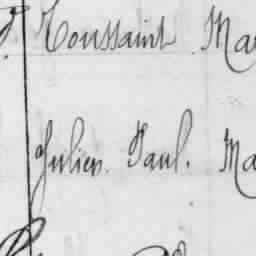 Toussaint Ma
Julien. Paul. Ma